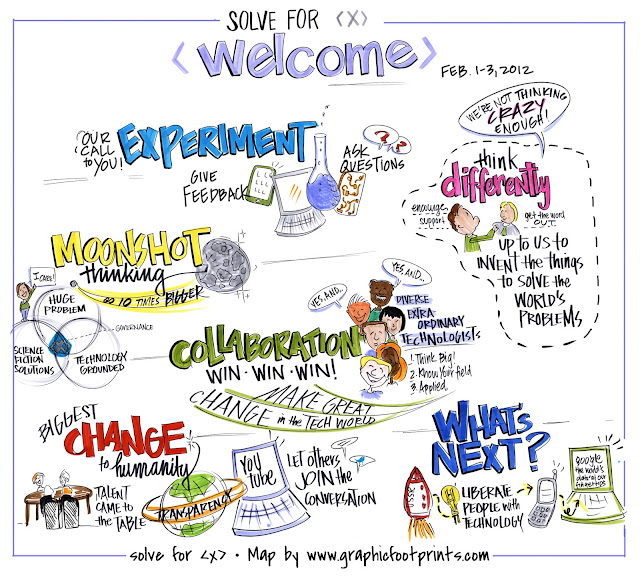 SOLVE FOR <X>
<welcome>
FEB. 1-3, 2012
OUR
CALL
to YOU!
EXPERIMENT
GIVE
FEEDBACK
ASK
QUESTIONS
? ?
WE'RE NOT THINKING
CRAZY
ENOUGH!
think
differently
encourage
support
get the word
OUT
UP TO US to
INVENT the things
to SOLVE the
WORLD'S
PROBLEMS
MOONSHOT
thinking
GO 10 TIMES BIGGER
I CARE!
HUGE
PROBLEM
GOVERNANCE
SCIENCE
FICTION
SOLUTIONS
TECHNOLOGY
GROUNDED
YES AND..
YES AND..
COLLABORATION
WIN · WIN · WIN!
DIVERSE
EXTRA
ORDINARY
TECHNOLOGISTS
1. Think Big!
2. Know Your field
3. Applied
MAKE GREAT
CHANGE in the TECH WORLD
BIGGEST
CHANGE
to humanity
TALENT
CAME to
the TABLE
TRANSPARENCY
YOU
tube
LET others
JOIN the
CONVERSATION
WHAT'S
NEXT?
USSR
LIBERATE
PEOPLE with
TECHNOLOGY
google
the world's
at our
fingertips
solve for <x> · Map by www.graphicfootprints.com